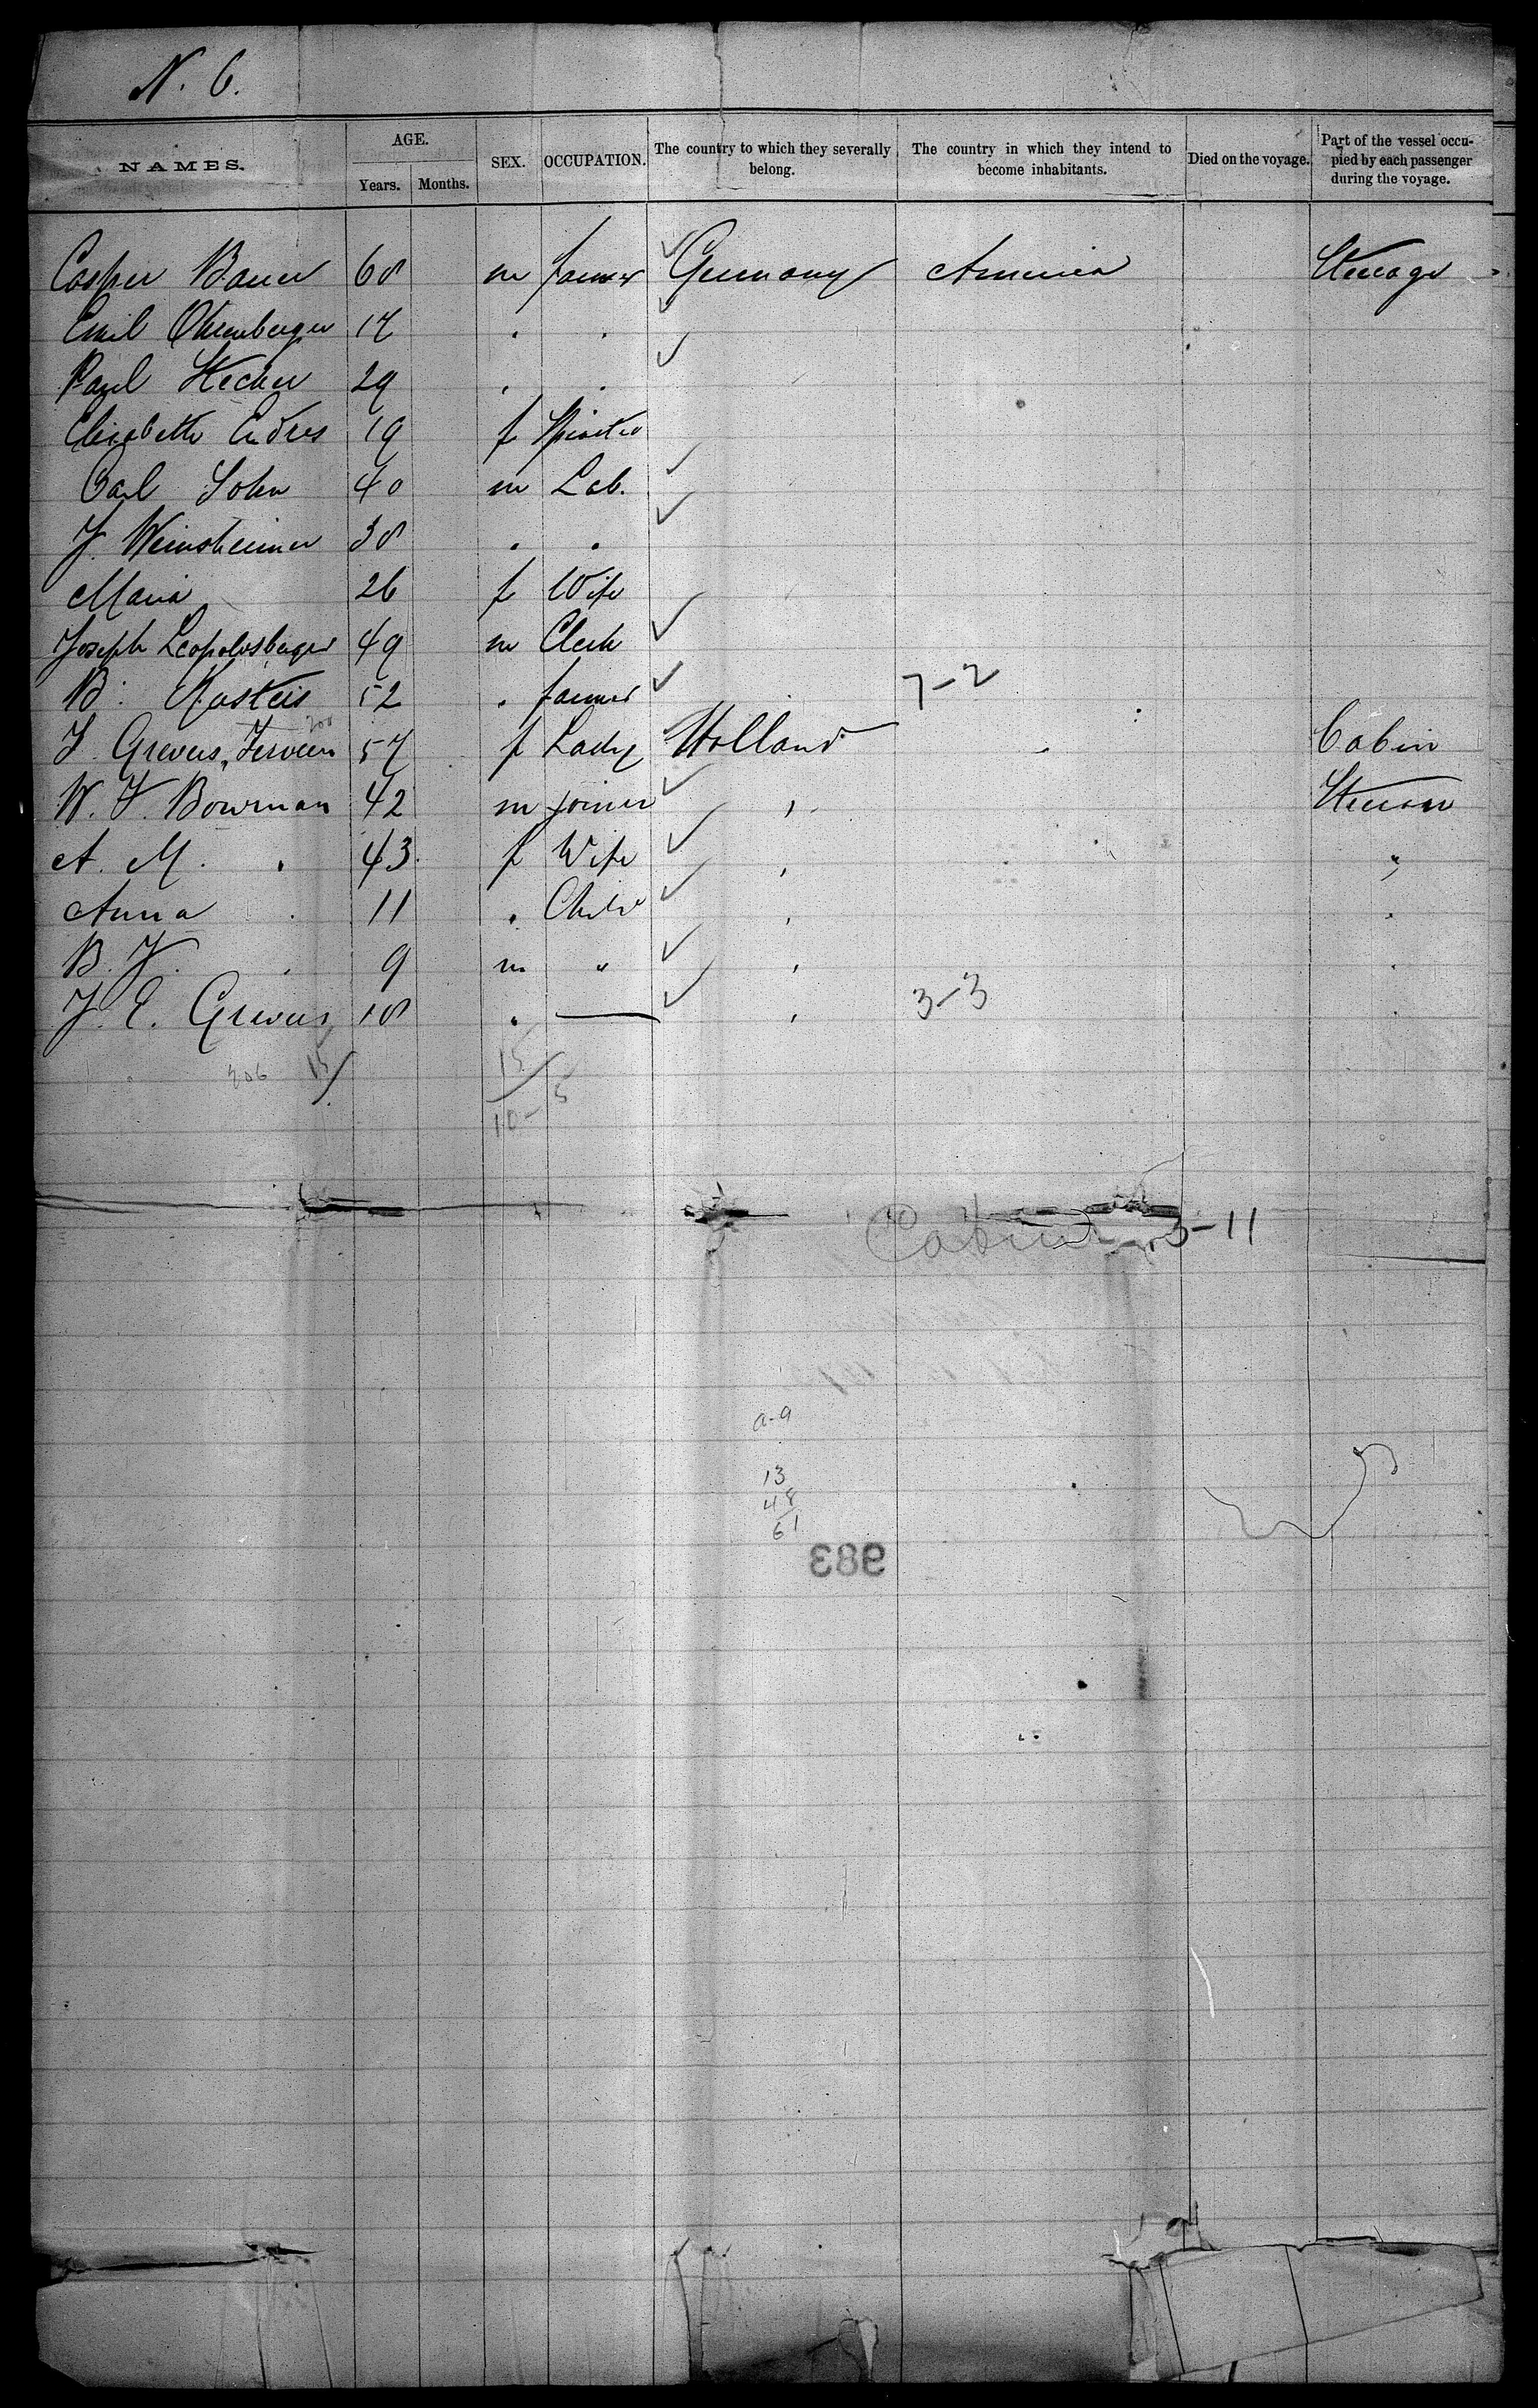 N. 6.
NAMES. AGE. Years. Months. SEX. OCCUPATION. The country to which they severally belong. The country in which they intend to become inhabitants. Died on the voyage. Part of the vessel occupied by each passenger during the voyage.
Casper Bauer 68 m farmer Germany America Steerage
Emil 17 . .
Paul Hecker 29 . .
Elisabeth Endres 19 f Spinster
Carl Sohn 40 m Lab.
J. Weinsheimer 38 . .
Maria 26 f Wife
Joseph Leopoldsberger 49 m Clerk
B. 52 . farmer 7-2
J. Greveus 57 f Lady Holland Cabin
W. F. Bowman 42 m joiner
A. M. . 43 f Wife "
Anna . 11 . Child .
B. J. . 9 m " .
J. E. Greveus 18 . — 3-3 .
206 15/ 15/
10-5
Cabin 3-11
a-9
13
48
61
983